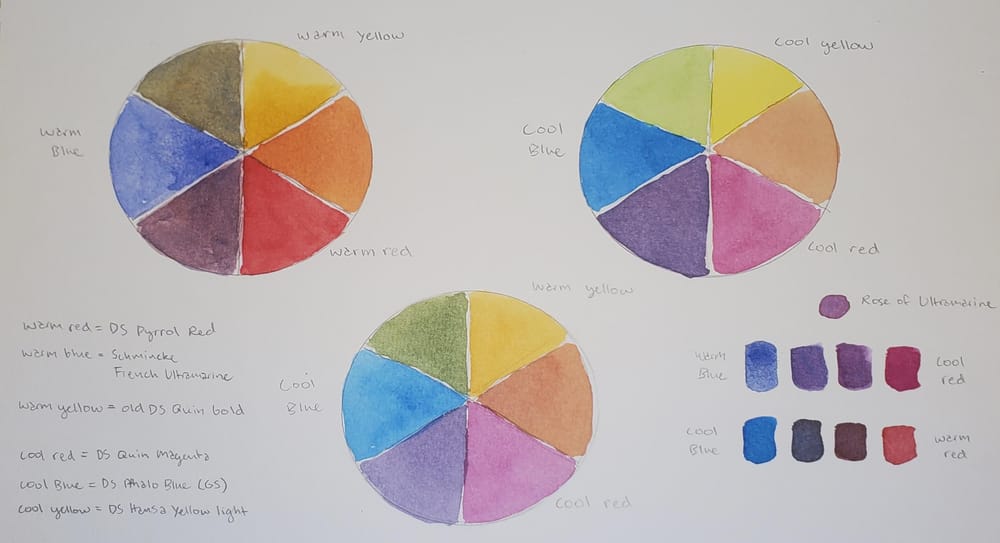 warm yellow
warm
Blue
warm red
Cool yellow
Cool
Blue
Cool red
warm yellow
Cool
Blue
Cool red
warm red = DS Pyrrol Red
warm blue = Schmincke
French Ultramarine
warm yellow = old DS Quin Gold
cool red = DS Quin Magenta
cool Blue = DS Phalo Blue (GS)
cool yellow = DS Hansa Yellow light
Rose of Ultramarine
warm
Blue
Cool
red
Cool
Blue
warm
red